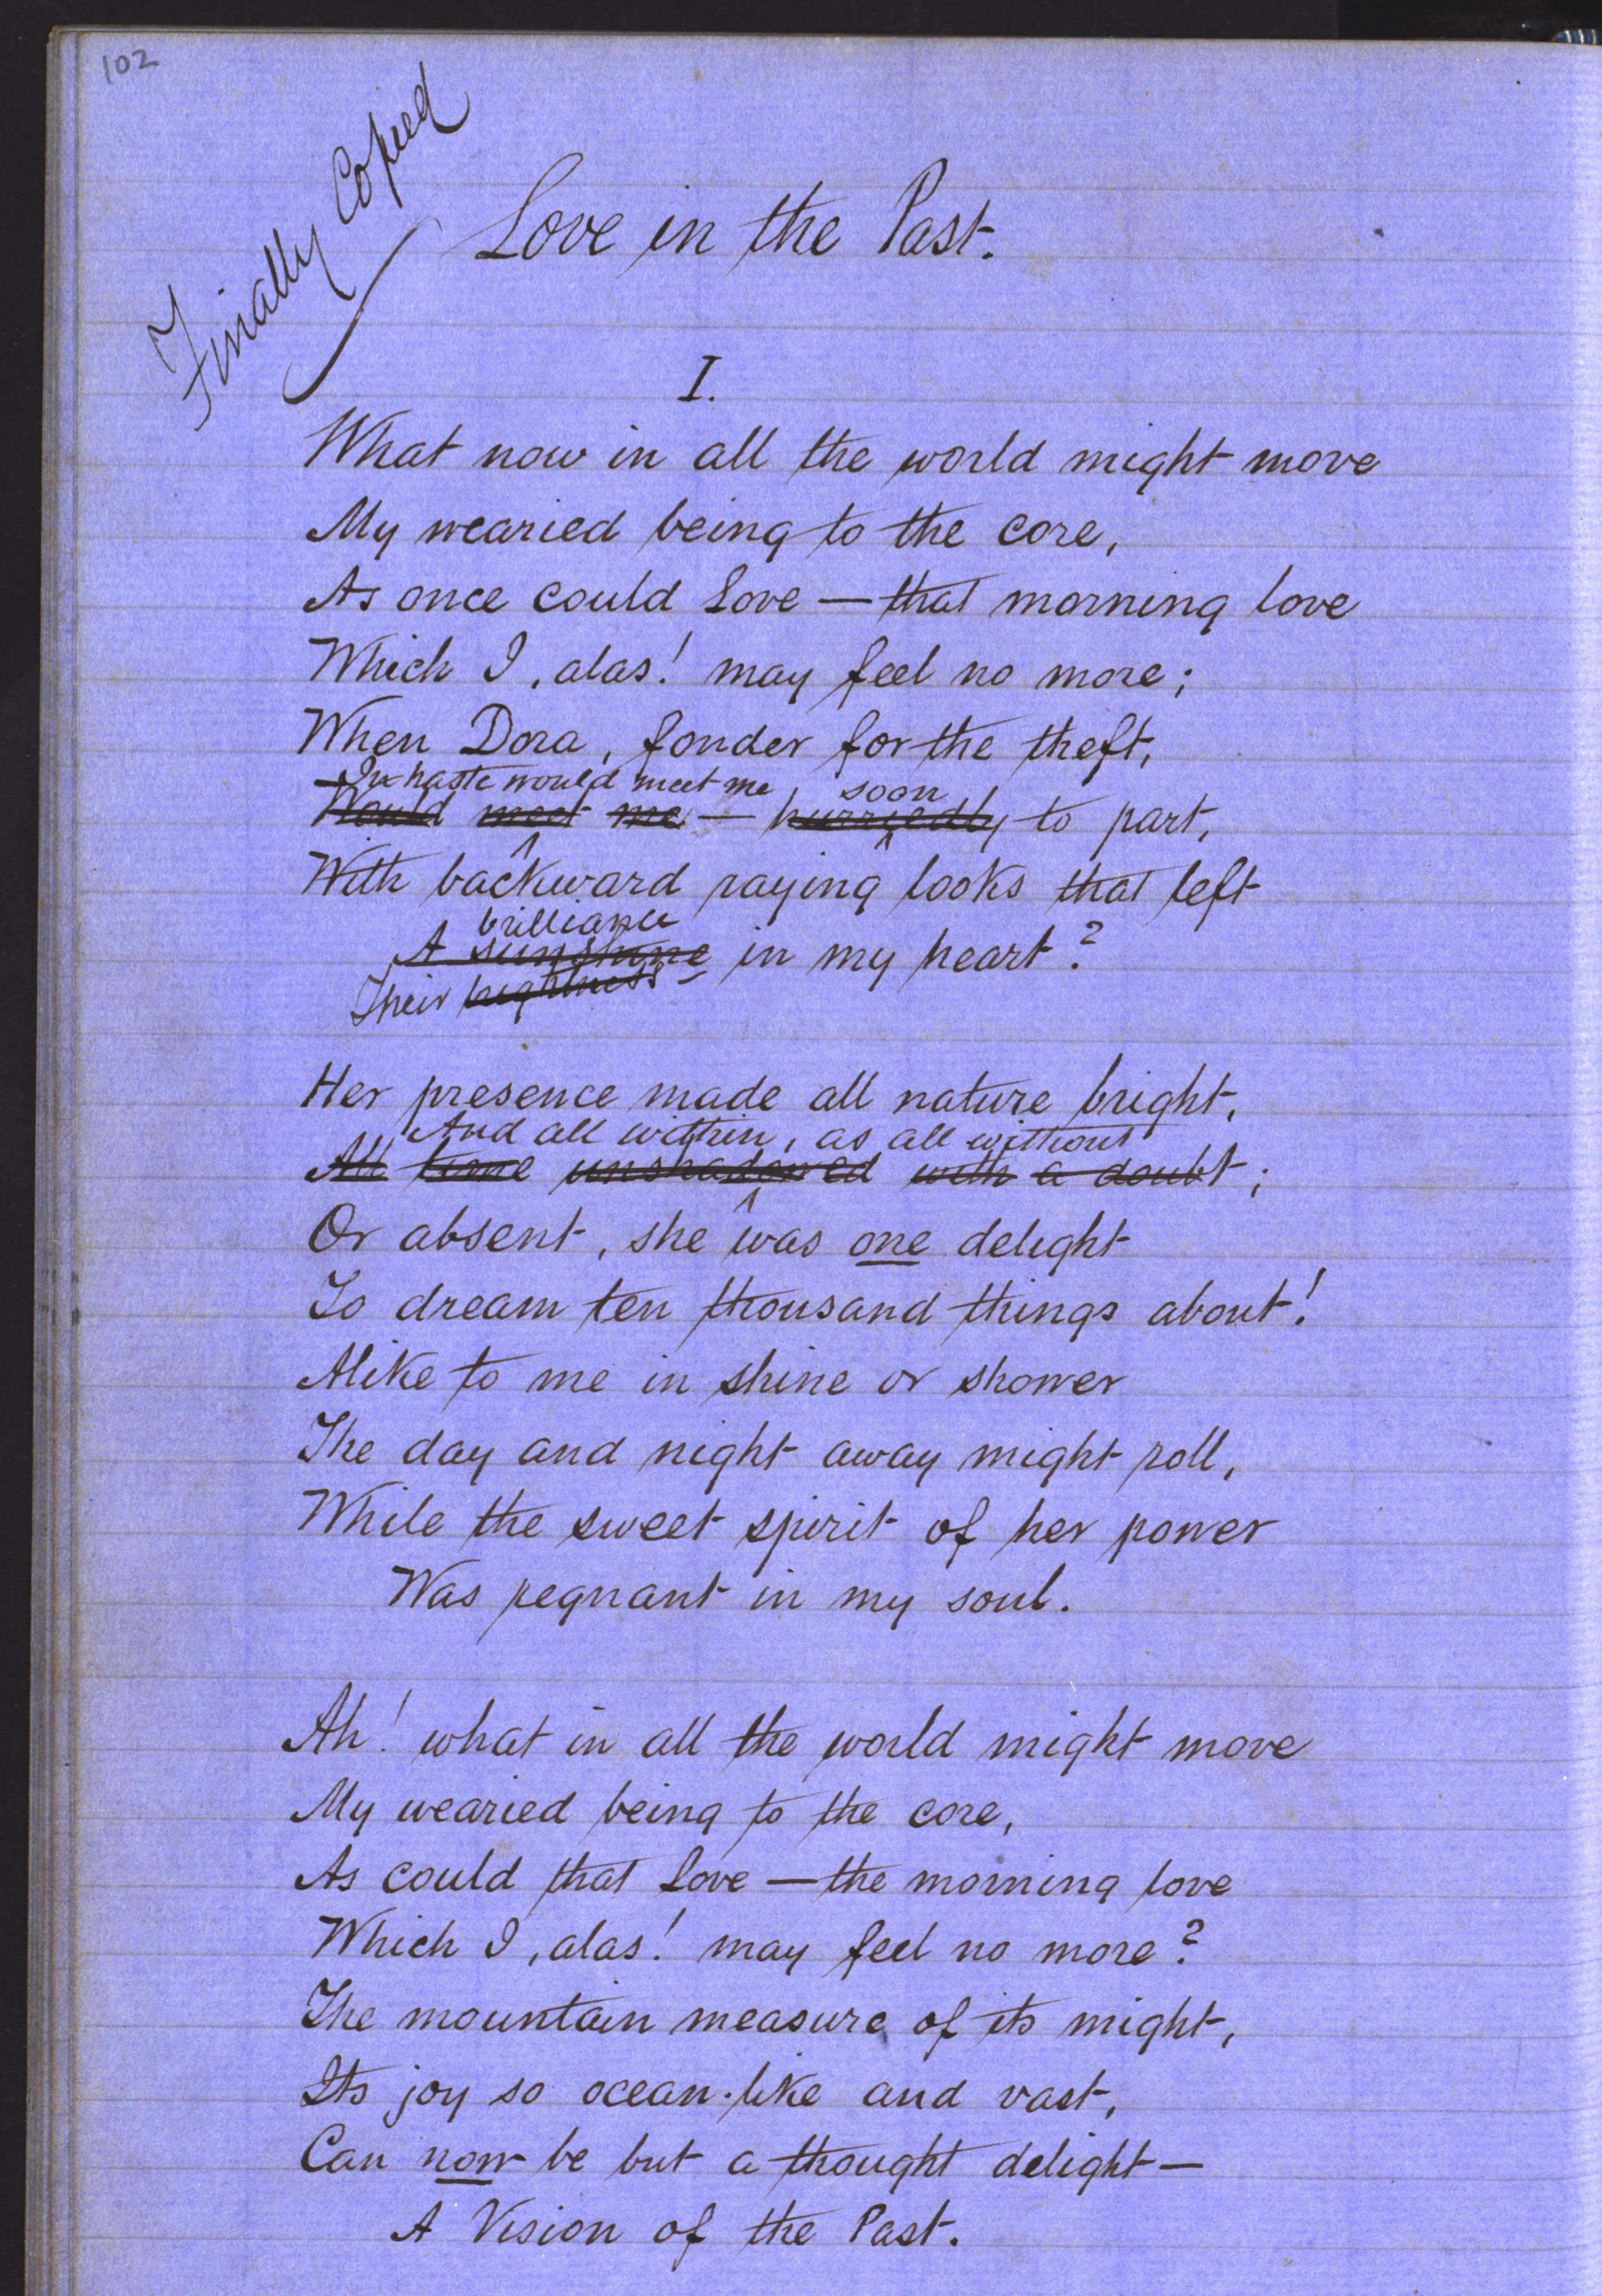 102
Finally Copied
Love in the Past.
I.
What now in all the world might move
My wearied being to the core,
As once could Love — that morning love
Which I, alas! may feel no more;
When Dora, fonder for the theft,
In haste would meet me soon
Would meet me — hurriedly to part,
With backward raying looks that left
brilliance
A sunshine in my heart?
Their brightness
Her presence made all nature bright,
And all within, as all without
All time unshadowed with a doubt;
Or absent, she was one delight
To dream ten thousand things about!
Alike to me in shine or shower
The day and night away might roll,
While the sweet spirit of her power
Was pegnant in my soul.
Ah! what in all the world might move
My wearied being to the core,
As could that Love — the morning love
Which I, alas! may feel no more?
The mountain measure of its might,
Its joy so ocean-like and vast,
Can now be but a thought delight —
A Vision of the Past.